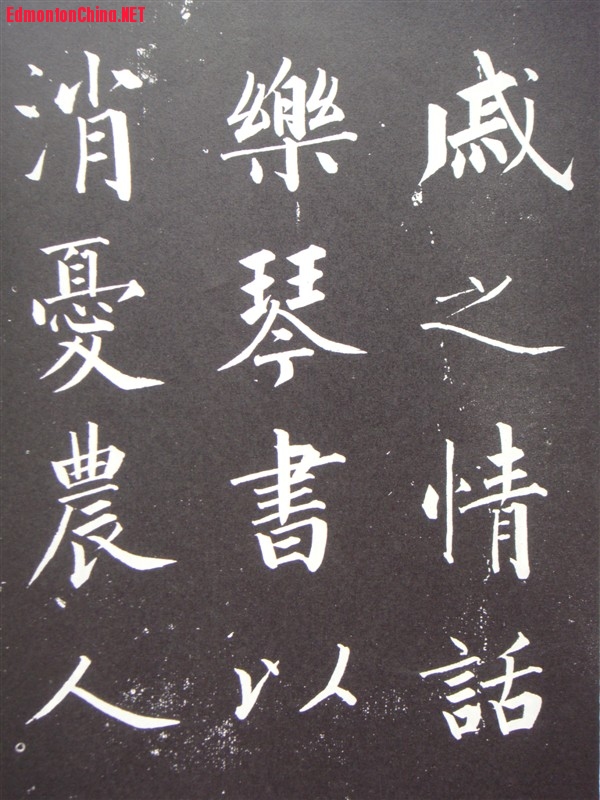 EdmontonChina.NET
戚之情話
樂琴書以
消憂農人